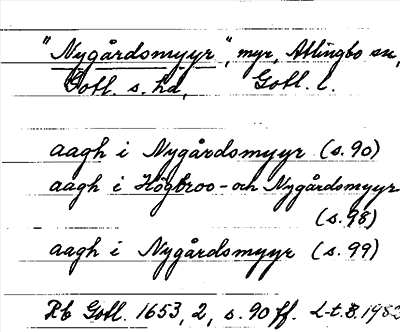 "Nygårdsmyyr", myr, Atlingbo sn,
Gotl. s. hd, Gotl. l.
aagh i Nygårdsmyyr (s. 90)
aagh i Högbroo- och Nygårdsmyyr
(s. 98)
aagh i Nygårdsmyyr (s. 99)
Rb Gotl. 1653, 2, s. 90 ff. L-t.B. 1982